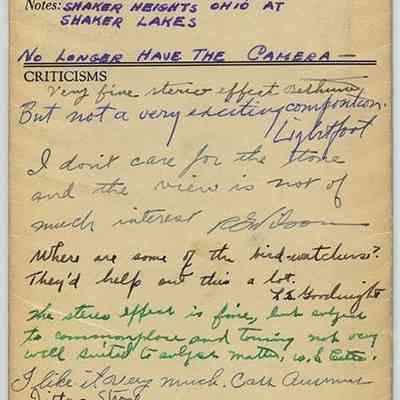 Notes: SHAKER HEIGHTS OHIO AT
SHAKER LAKES
NO LONGER HAVE THE CAMERA —
CRITICISMS
Very fine stereo effect Bethune
But not a very exciting composition.
Lightfoot
I don't care for the tone
and the view is not of
much interest
Where are some of the bird-watchers?
They'd help out this a lot.
L.E. Goodnight
The stereo effect is fine, but subject
to commonplace and toning not very
well suited to subject matter.
I like it very much. Cash
Ditto -